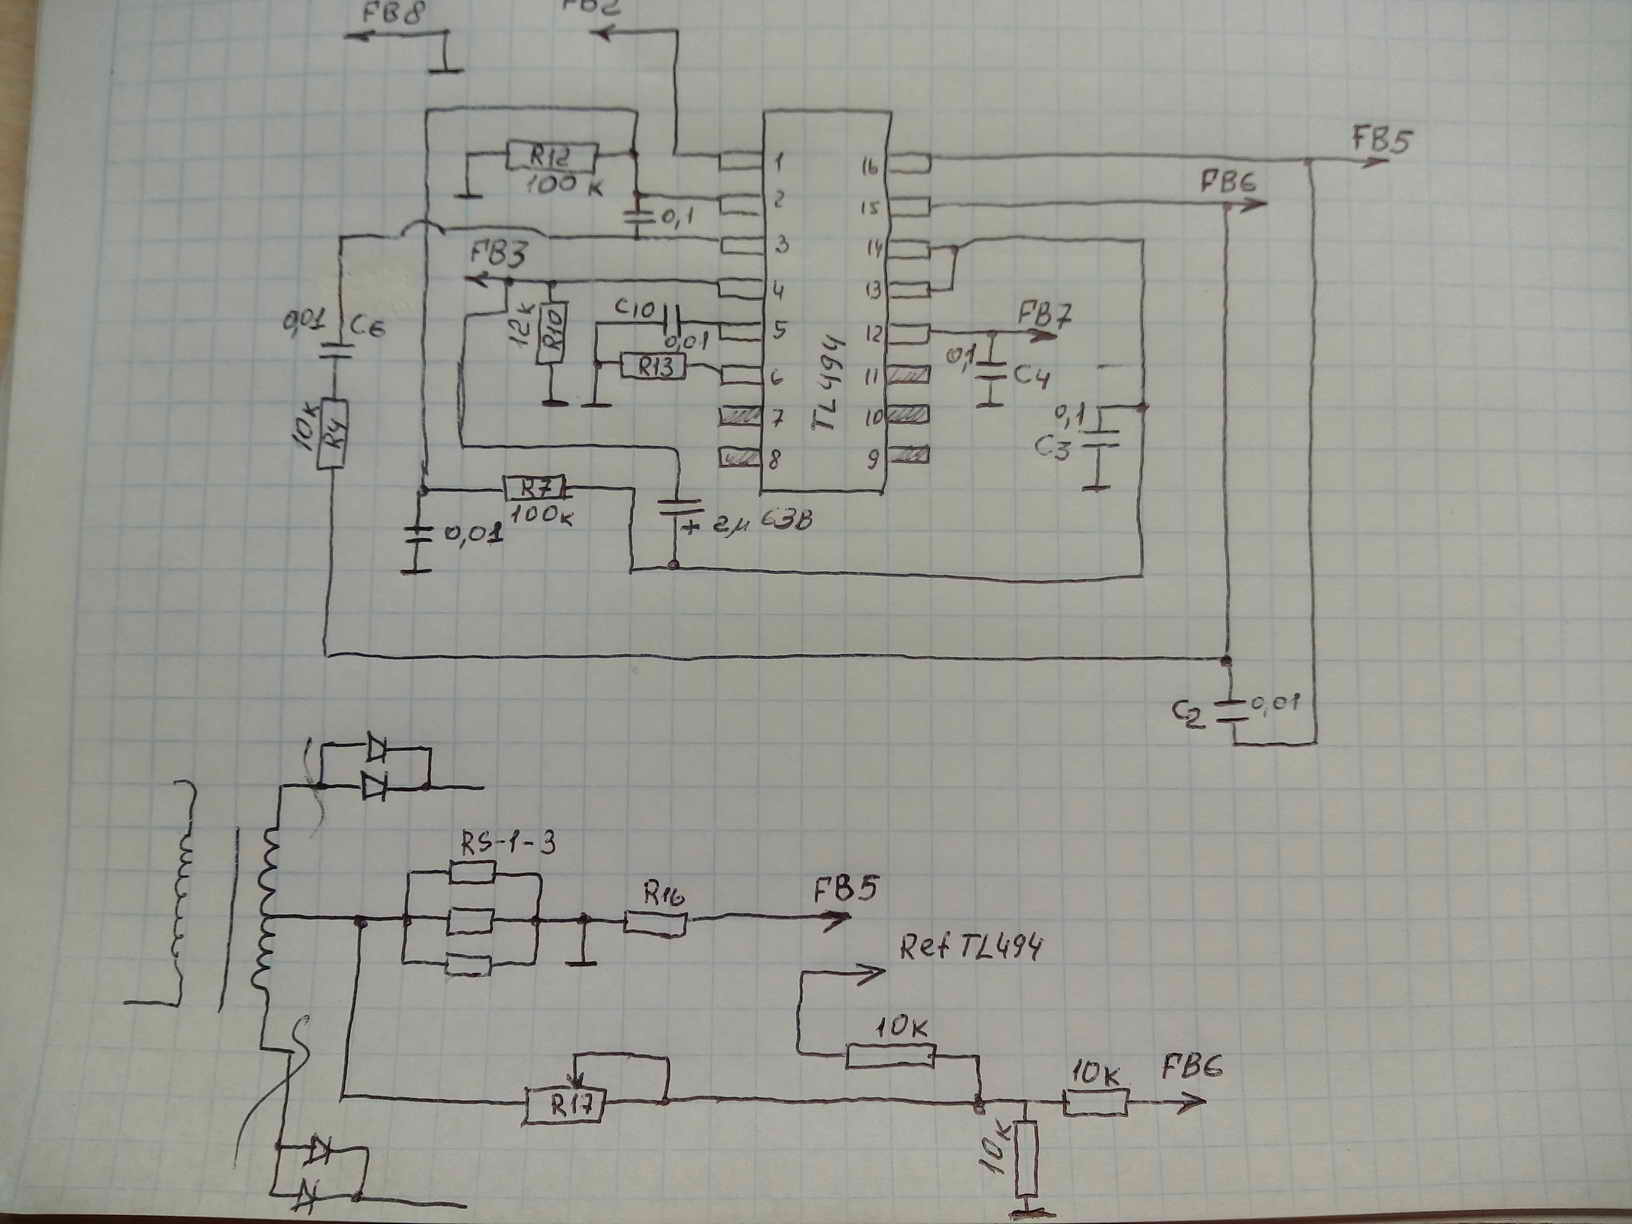 FB8
FB2
FB5
FB6
R12
100 к
1
2
3
4
5
6
7
8
16
15
14
13
12
11
10
9
TL494
0,1
FB3
0,01 C6
12к
R10
C10
0,01
R13
FB7
0,1
C4
0,1
C3
10к
R4
R7
100к
0,01
+ 2μ 63В
C2 0,01
RS-1-3
R16
FB5
Ref TL494
10к
10к
FB6
R17
10к